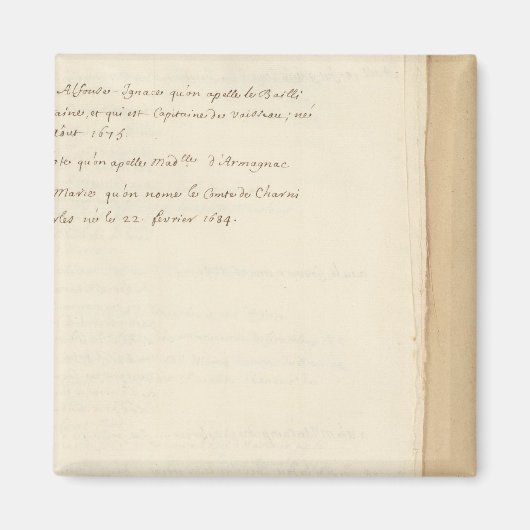 Alfonse-Ignace qu'on apelle le Bailli
aine, et qui est Capitaine des vaisseau; né
Aôut 1675.
qu'on apelle Mad.lle d'Armagnac
Marie qu'on nome le Comte de Charni
rles né le 22. fevrier 1684.